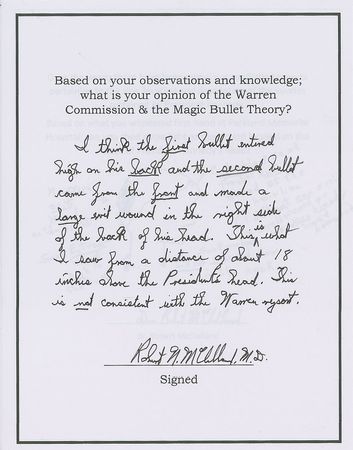 Based on your observations and knowledge;
what is your opinion of the Warren
Commission & the Magic Bullet Theory?
I think the first bullet entered
high on his back and the second bullet
came from the front and made a
large exit wound in the right side
of the back of his head. This is what
I saw from a distance of about 18
inches above the President's head. This
is not consistent with the Warren report.
Robert N. McClelland, M.D.
Signed